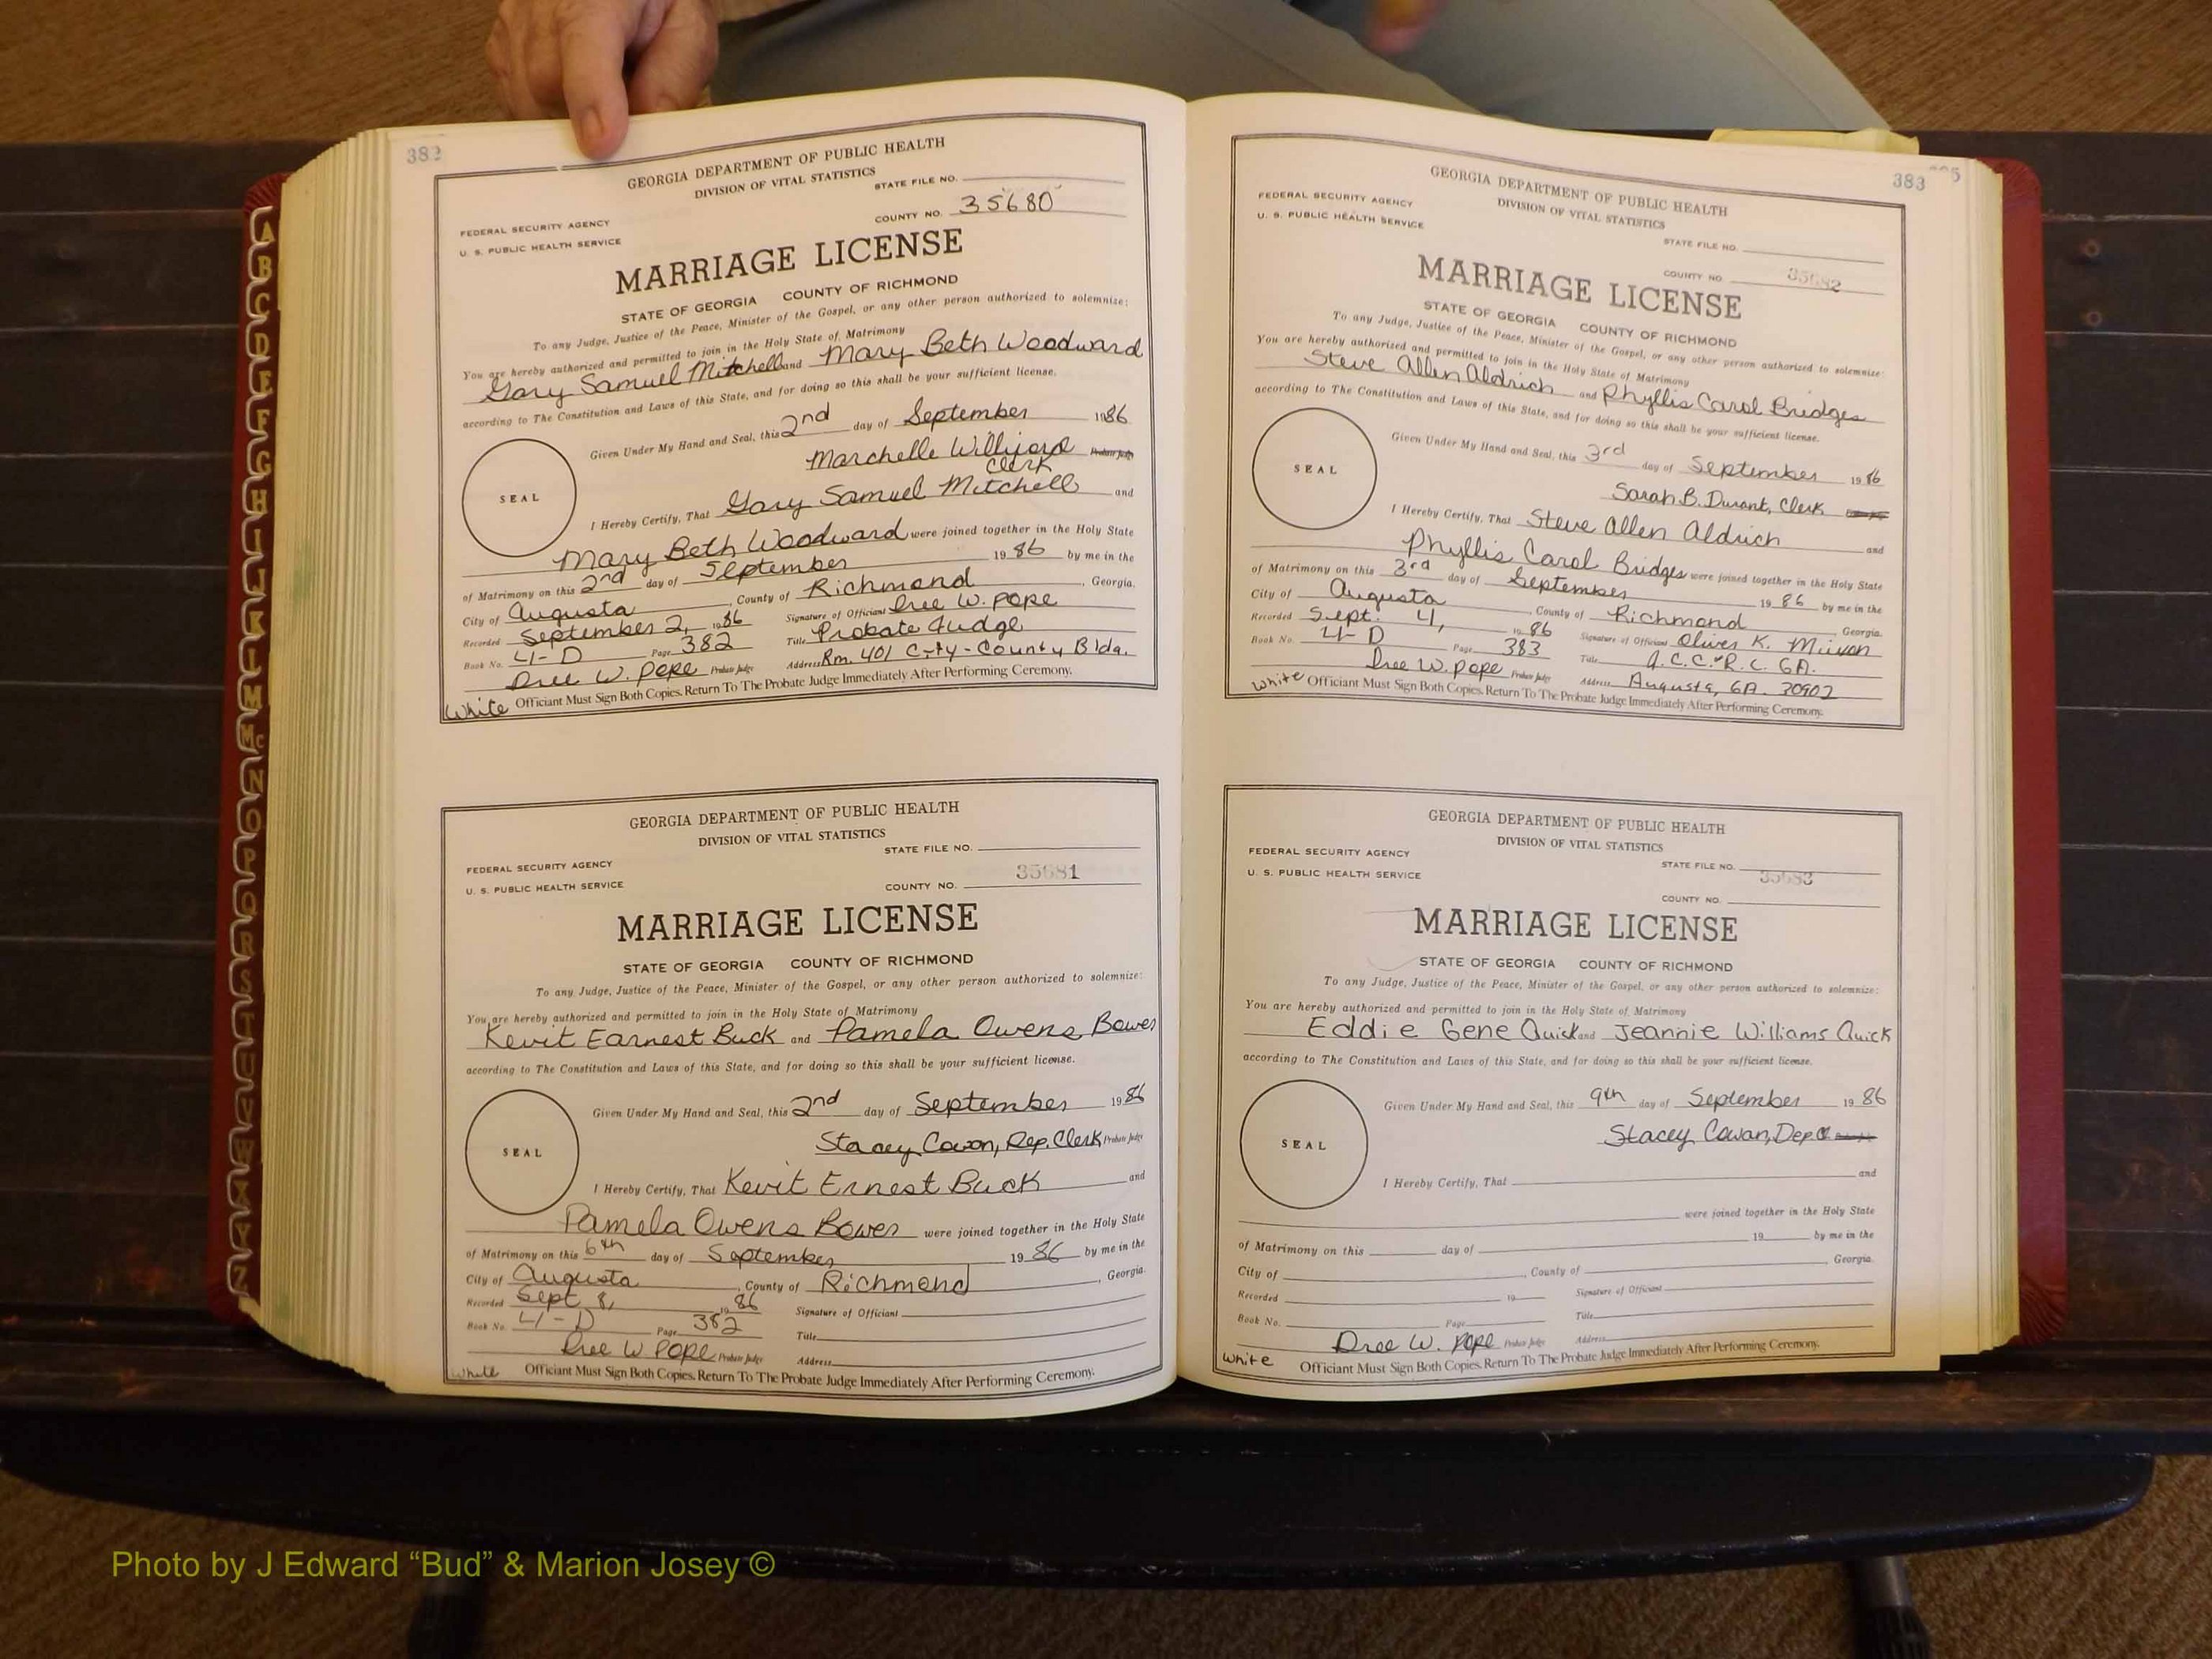 382
GEORGIA DEPARTMENT OF PUBLIC HEALTH
DIVISION OF VITAL STATISTICS
STATE FILE NO.
FEDERAL SECURITY AGENCY
COUNTY NO. 35680
U. S. PUBLIC HEALTH SERVICE
MARRIAGE LICENSE
STATE OF GEORGIA COUNTY OF RICHMOND
To any Judge, Justice of the Peace, Minister of the Gospel, or any other person authorized to solemnize:
You are hereby authorized and permitted to join in the Holy State of Matrimony
Gary Samuel Mitchell and Mary Beth Woodward
according to The Constitution and Laws of this State, and for doing so this shall be your sufficient license.
Given Under My Hand and Seal, this 2nd day of September 1986
Marchelle Williford Probate Judge
Clerk
SEAL
I Hereby Certify, That Gary Samuel Mitchell and
Mary Beth Woodward were joined together in the Holy State
of Matrimony on this 2nd day of September 19 86 by me in the
City of Augusta, County of Richmond, Georgia.
Recorded September 2, 1986 Signature of Officiant Dree W. Pope
Book No. 4-D Page 382 Title Probate Judge
Dree W. Pope Probate Judge Address Rm. 401 City-County Bldg.
White Officiant Must Sign Both Copies. Return To The Probate Judge Immediately After Performing Ceremony.
GEORGIA DEPARTMENT OF PUBLIC HEALTH
DIVISION OF VITAL STATISTICS
STATE FILE NO.
FEDERAL SECURITY AGENCY
COUNTY NO. 35681
U. S. PUBLIC HEALTH SERVICE
MARRIAGE LICENSE
STATE OF GEORGIA COUNTY OF RICHMOND
To any Judge, Justice of the Peace, Minister of the Gospel, or any other person authorized to solemnize:
You are hereby authorized and permitted to join in the Holy State of Matrimony
Kevit Earnest Buck and Pamela Owens Bower
according to The Constitution and Laws of this State, and for doing so this shall be your sufficient license.
Given Under My Hand and Seal, this 2nd day of September 1986
Stacey Cowan, Dep. Clerk Probate Judge
SEAL
I Hereby Certify, That Kevit Ernest Buck and
Pamela Owens Bower were joined together in the Holy State
of Matrimony on this 6th day of September 19 86 by me in the
City of Augusta, County of Richmond, Georgia.
Recorded Sept 8, 1986 Signature of Officiant
Book No. 4-D Page 382 Title
Dree W Pope Probate Judge Address
White Officiant Must Sign Both Copies. Return To The Probate Judge Immediately After Performing Ceremony.
383
GEORGIA DEPARTMENT OF PUBLIC HEALTH
DIVISION OF VITAL STATISTICS
FEDERAL SECURITY AGENCY
U. S. PUBLIC HEALTH SERVICE
STATE FILE NO.
COUNTY NO. 35682
MARRIAGE LICENSE
STATE OF GEORGIA COUNTY OF RICHMOND
To any Judge, Justice of the Peace, Minister of the Gospel, or any other person authorized to solemnize:
You are hereby authorized and permitted to join in the Holy State of Matrimony
Steve Allen Aldrich and Phyllis Carol Bridges
according to The Constitution and Laws of this State, and for doing so this shall be your sufficient license.
Given Under My Hand and Seal, this 3rd day of September 1986
Sarah B. Durant, Clerk
SEAL
I Hereby Certify, That Steve Allen Aldrich and
Phyllis Carol Bridges were joined together in the Holy State
of Matrimony on this 3rd day of September 19 86 by me in the
City of Augusta, County of Richmond, Georgia.
Recorded Sept. 4, 1986 Signature of Officiant Oliver K.
Book No. 4-D Page 383 Title
Dree W. Pope Probate Judge Address Augusta, GA. 30902
White Officiant Must Sign Both Copies. Return To The Probate Judge Immediately After Performing Ceremony.
GEORGIA DEPARTMENT OF PUBLIC HEALTH
DIVISION OF VITAL STATISTICS
FEDERAL SECURITY AGENCY
STATE FILE NO.
U. S. PUBLIC HEALTH SERVICE
35683
COUNTY NO.
MARRIAGE LICENSE
STATE OF GEORGIA COUNTY OF RICHMOND
To any Judge, Justice of the Peace, Minister of the Gospel, or any other person authorized to solemnize:
You are hereby authorized and permitted to join in the Holy State of Matrimony
Eddie Gene Quick and Jeannie Williams Quick
according to The Constitution and Laws of this State, and for doing so this shall be your sufficient license.
Given Under My Hand and Seal, this 9th day of September 19 86
Stacey Cowan, Dep. Cl.
SEAL
I Hereby Certify, That and
were joined together in the Holy State
of Matrimony on this day of 19 by me in the
City of , County of , Georgia.
Recorded 19 Signature of Officiant
Book No. Page Title
Dree W. Pope Probate Judge Address
White Officiant Must Sign Both Copies. Return To The Probate Judge Immediately After Performing Ceremony.
A
B
C
D
E
F
G
H
I
J
K
L
M
Mc
N
O
P
Q
R
S
T
U
V
W
X
Y
Z
Photo by J Edward “Bud” & Marion Josey ©